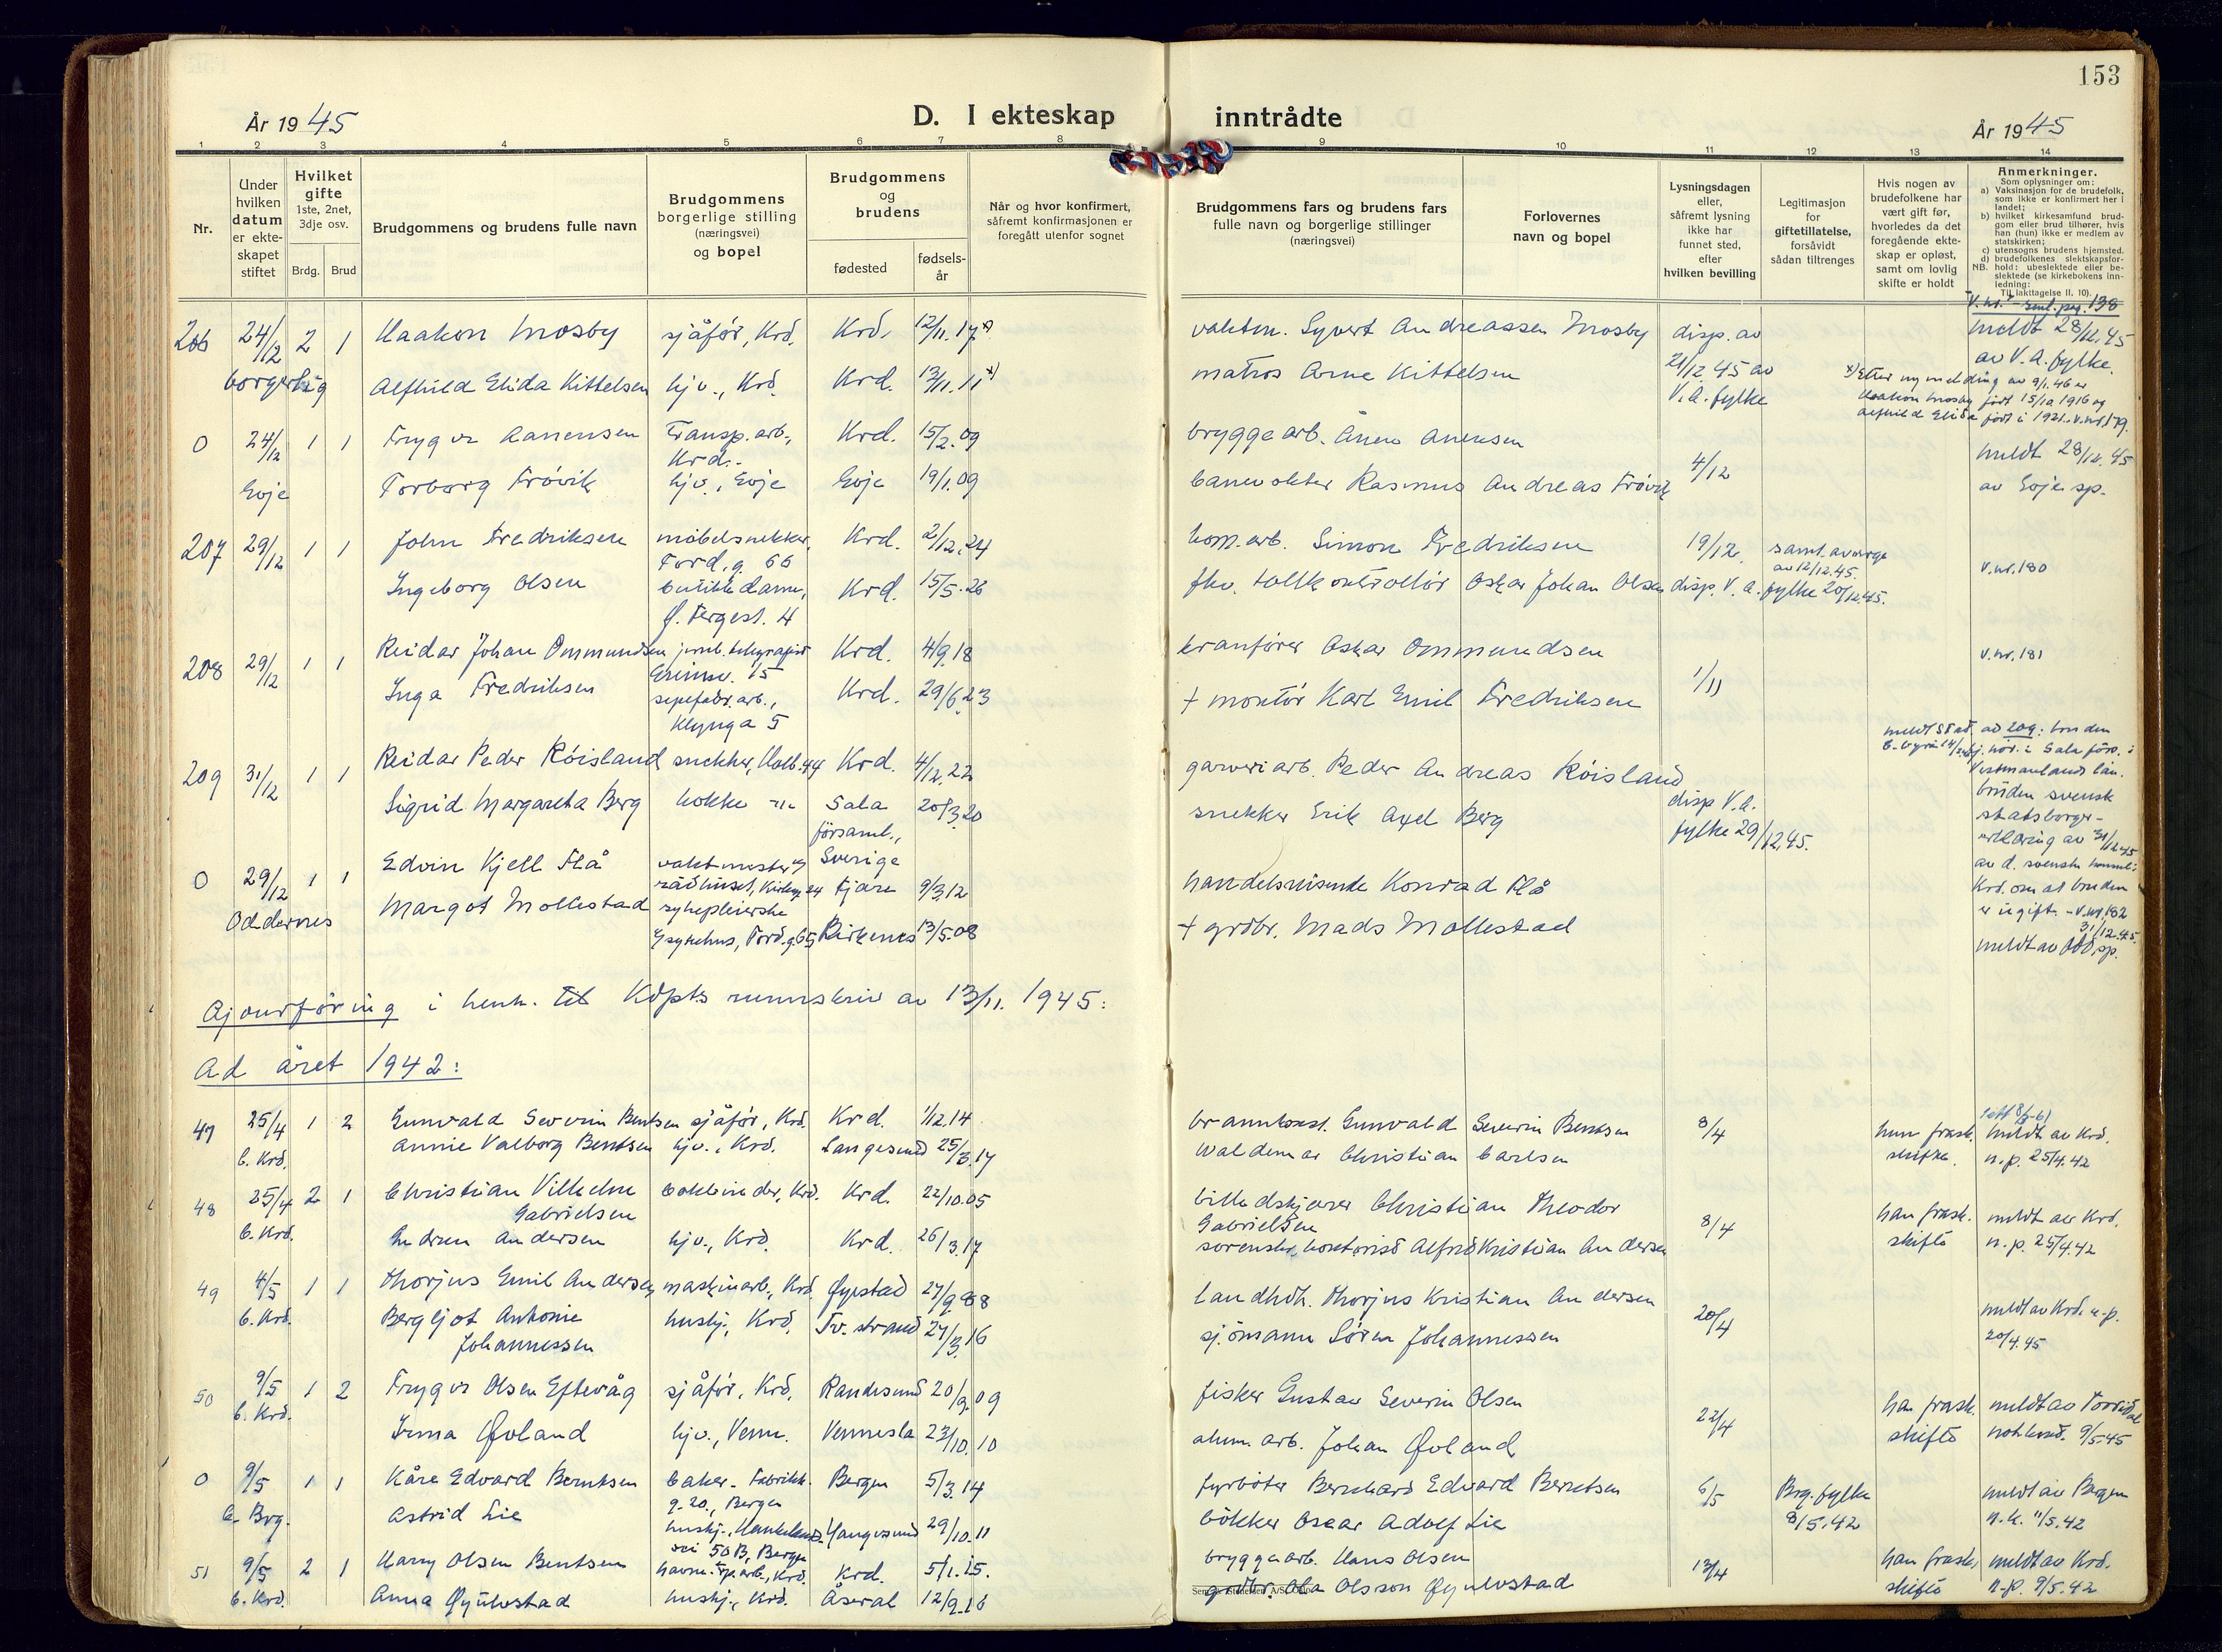 153
År 1945
D. I ekteskap inntrådte
År 1945
1 2 3 4 5 6 7 8 9 10 11 12 13 14
Nr.
Under hvilken datum er ekte-skapet stiftet
Hvilket gifte 1ste, 2net, 3dje osv.
Brdg. Brud
Brudgommens og brudens fulle navn
Brudgommens borgerlige stilling (næringsvei) og bopel
Brudgommens og brudens
fødested
fødsels-år
Når og hvor konfirmert, såfremt konfirmasjonen er foregått utenfor sognet
Brudgommens fars og brudens fars fulle navn og borgerlige stillinger (næringsvei)
Forlovernes navn og bopel
Lysningsdagen eller, såfremt lysning ikke har funnet sted, efter hvilken bevilling
Legitimasjon for giftetillatelse, forsåvidt sådan tiltrenges
Hvis nogen av brudefolkene har vært gift før, hvorledes da det foregående ekte-skap er opløst, samt om lovlig skifte er holdt
Anmerkninger.
Som oplysninger om:
a) Vaksinasjon for de brudefolk, som ikke er konfirmert her i landet;
b) hvilket kirkesamfund brud-gom eller brud tilhører, hvis han (hun) ikke er medlem av statskirken;
c) utensogns brudens hjemsted.
d) brudefolkenes slektskapsfor-hold: ubeslektede eller be-slektede (se kirkebokens inn-ledning:
NB. Til iakttagelse II, 10).
206 24/12 2 1 Haakon Mosby sjåför, Krd. Krd. 12/11.17 x) vaktm. Syvert Andreassen Mosby disp. av meldt 28/12.45
borgerlig Alfhild Elida Kittelsen hjv., Krd. Krd. 13/11.11 x) matros Arne Kittelsen 21/12.45 av V.A. fylke av V.A. fylke.
x) Etter ny melding av 9/1.46 er
Haakon Mosby født 15/12 1916 og
Alfhild Elida født i 1921. V.nr.179.
0 24/12 1 1 Trygve Aanensen Transp.arb., Krd. Krd. 15/2.09 bryggearb. Ånen Anensen 4/12 meldt 28/12.45
Evje Torborg Trövik hjv., Evje Evje 19/1.09 banevokter Rasmus Andreas Trövik av Evje sp.
207 29/12 1 1 John Fredriksen möbelsnekker, Tord.g. 66 Krd. 2/12.24 kom.arb. Simon Fredriksen 19/12. samt. av verge av 12/12.45. V.nr.180
Ingeborg Olsen butikkdame, Ø. Tergest. 4 Krd. 15/5.26 fhv. tollkontrollör Oskar Johan Olsen disp. V.A. fylke 20/12.45.
208 29/12 1 1 Reidar Johan Ommundsen jernb.telegrafist Krd. 4/9.18 kranförer Oskar Ommundsen 1/11 V.nr.181
Inga Fredriksen sepefabr.arb., Klynga 5 Krd. 29/6.23 + montör Karl Emil Fredriksen
209 31/12 1 1 Reidar Peder Röisland snekker, Holb.g. 44 Krd. 4/12.22 garveriarb. Peder Andreas Röisland disp V.A. fylke 29/12.45.
Sigrid Margareta Berg kokke Sala församl., Sverige 20/3.20 snekker Erik Axel Berg
ad 209: bruden
hj.hör. i Sala förs. i
Vestmanlands län.
bruden svensk
statsborger-
erklæring av 31/12.45
av d. svenske konsul i
Krd. om at bruden
er ugift. - V.nr.182
0 29/12 1 1 Edvin Kjell Flå vaktmester v/ rådhuset, Kirkeg. 24 Fjære 9/3.12 handelsreisende Konrad Flå
Oddernes Margot Mollestad sykepleierske v/ sykehus, Tord.g.65 Birkenes 13/5.08 + grdbr. Mads Mollestad 31/12.45. meldt av Odd.sp.
Ajourföring i henh. til Kdpts rundskriv av 13/11. 1945:
Ad året 1942:
47 25/4 1 2 Gunvald Severin Bentsen sjåför, Krd. Krd. 1/12.14 brannkonst. Gunvald Severin Bentsen 8/4 hun frask. meldt av Krd.
b. Krd. Annie Valborg Bentsen hjv., Krd. Langesund 25/3.17 Waldemar Christian Carlsen skifte. n.p. 25/4.42
48 25/4 2 1 Christian Vilhelm Gabrielsen bokbinder, Krd. Krd. 22/10.05 billedskjærer Christian Theodor Gabrielsen 8/4 han frask. meldt av Krd.
b. Krd. Andersen hjv., Krd. Krd. 26/3.17 sorenskr.kontorist Alfred Kristian Andersen skifte n.p. 25/4.42
49 4/5 1 1 Thorjus Emil Andersen maskinarb., Krd. Øyestad 27/9.88 landhdlr. Thorjus Kristian Andersen 20/4 meldt av Krd. n.p.
b. Krd. Bergljot Antonie Johannessen hushj., Krd. Tv.strand 27/3.16 sjömann Sören Johannessen 20/4.45
50 9/5 1 2 Trygve Olsen Eftevåg sjåför, Krd. Randesund 20/9.09 fisker Gustav Severin Olsen 22/4 han frask. meldt av Torridal
b. Krd. Irma Øvland hjv., Venn. Vennesla 23/10.10 alum.arb. Johan Øvland skifte 9/5.45
0 9/5 1 1 Kåre Edvard Berntsen baker, Fabrikk-g. 20, Bergen Bergen 5/3.14 fyrböter Bernhard Edvard Berntsen 6/5 Brg. fylke meldt av Bergen
b. Brg. Astrid Lie hushj., vei 50 B, Bergen Haugesund 29/10.11 bökker Oscar Adolf Lie 8/5.42 n.k. 11/5.42
51 9/5 2 1 Harry Olsen Bentsen havne-Tp.arb., Krd. Krd. 5/1.15. bryggearb. Hans Olsen 13/4 han frask. meldt av Krd.
b. Krd. Anna Øyulvstad hushj., Krd. Åseral 12/9.16 grdbr. Ola Olsson Øyulvstad skifte n.p. 9/5.42